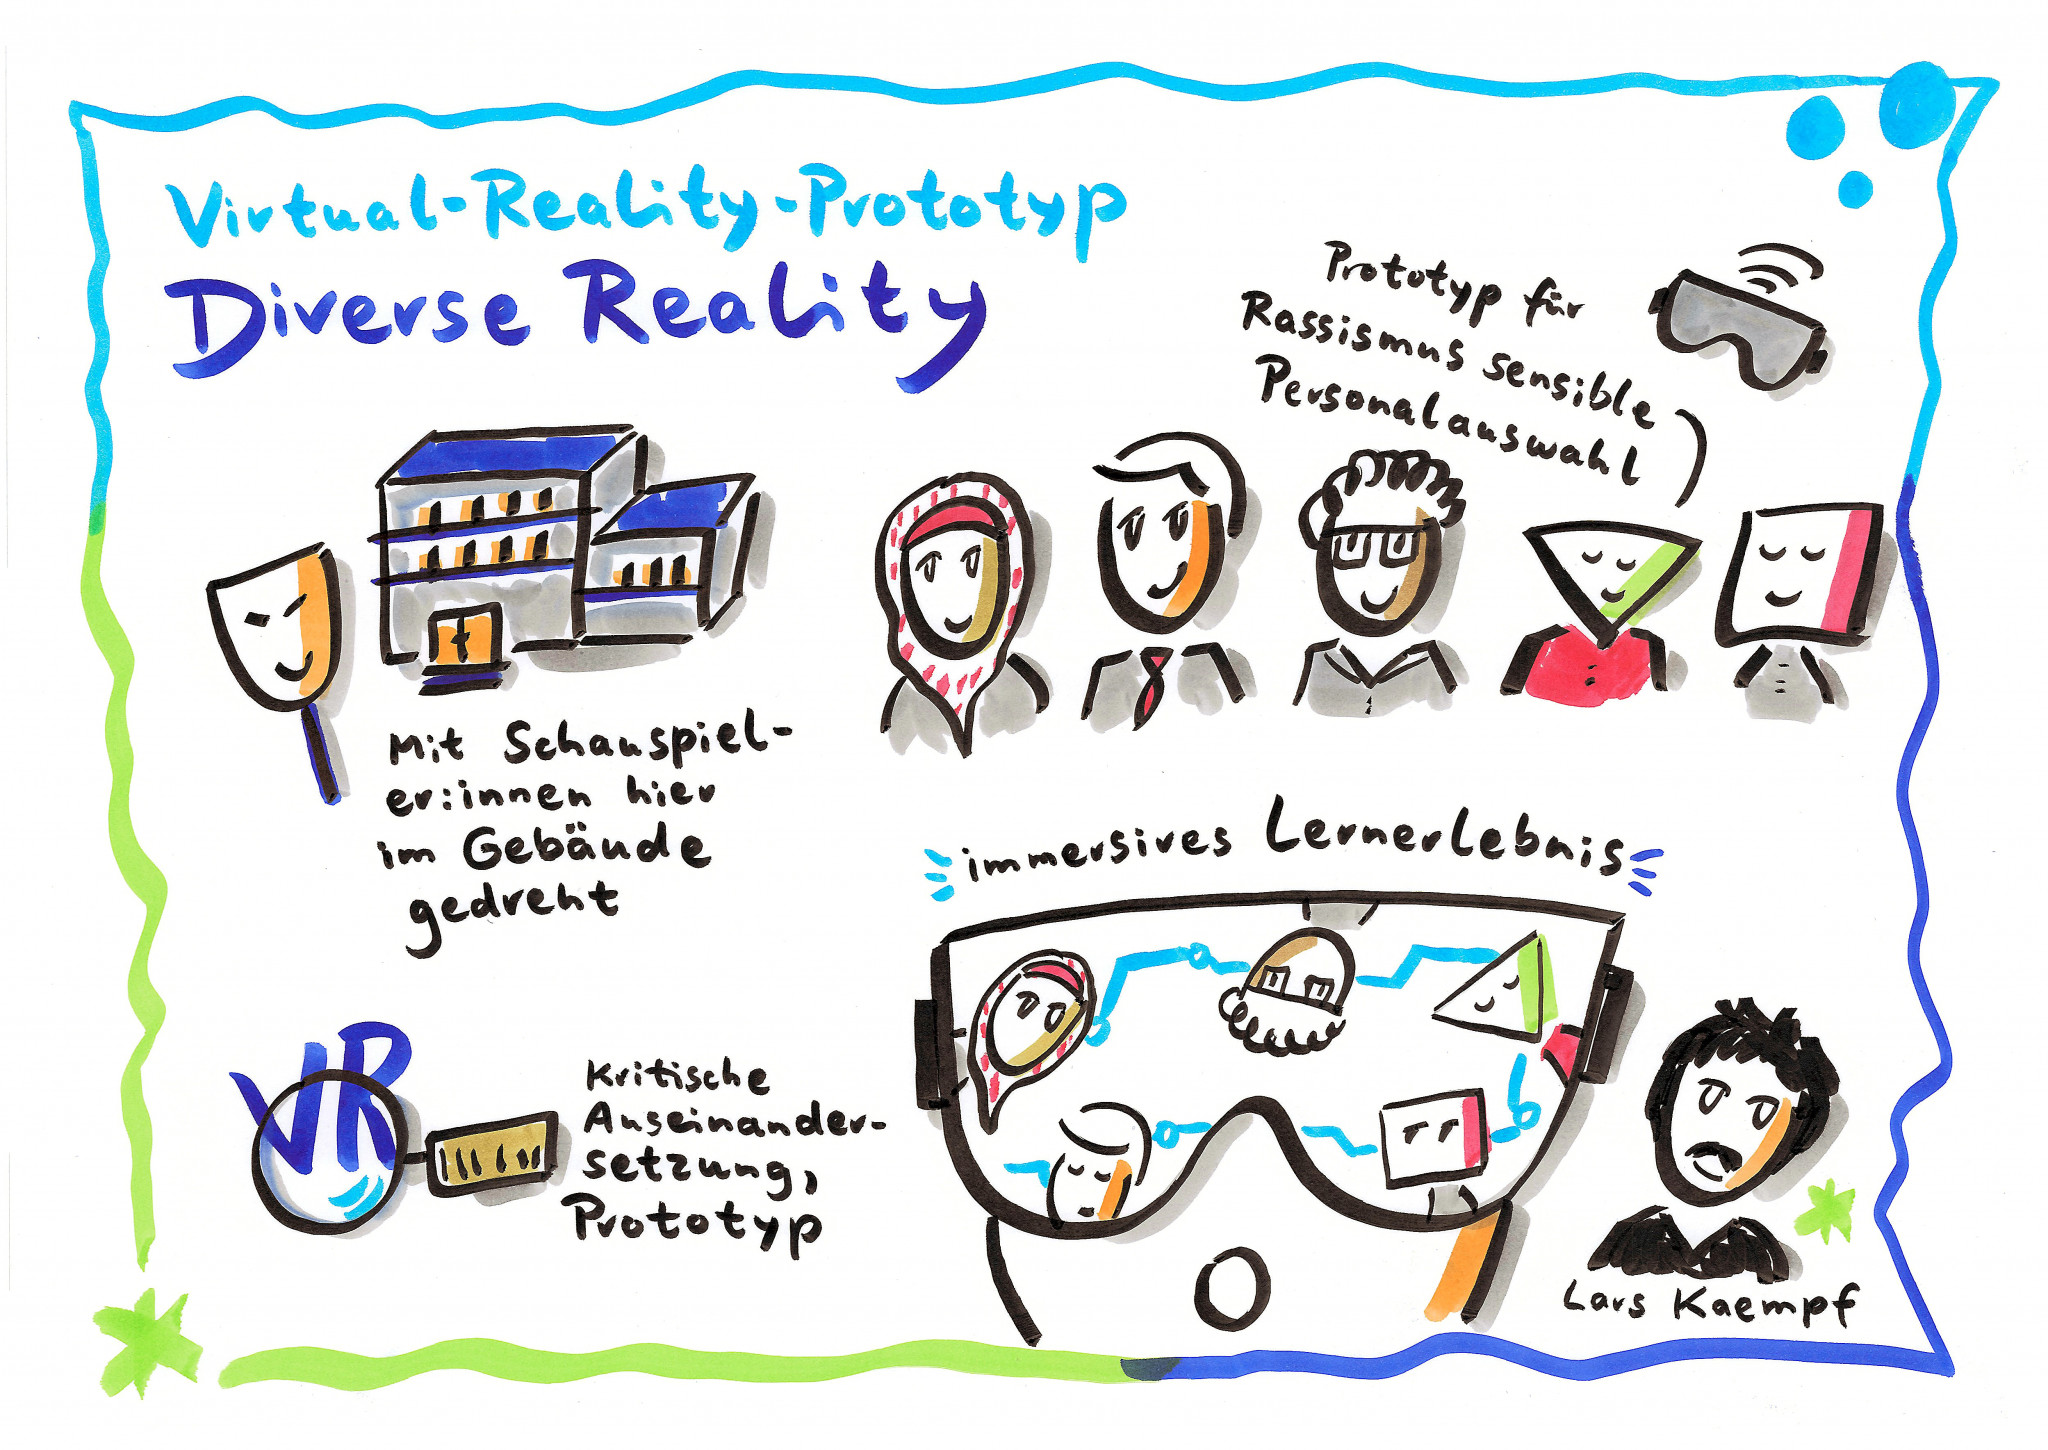 Virtual-Reality-Prototyp
Diverse Reality
Prototyp für
Rassismus sensible
Personalauswahl
Mit Schauspiel-
er:innen hier
im Gebäude
gedreht
immersives Lernerlebnis
VR
Kritische
Auseinander-
setzung,
Prototyp
Lars Kaempf